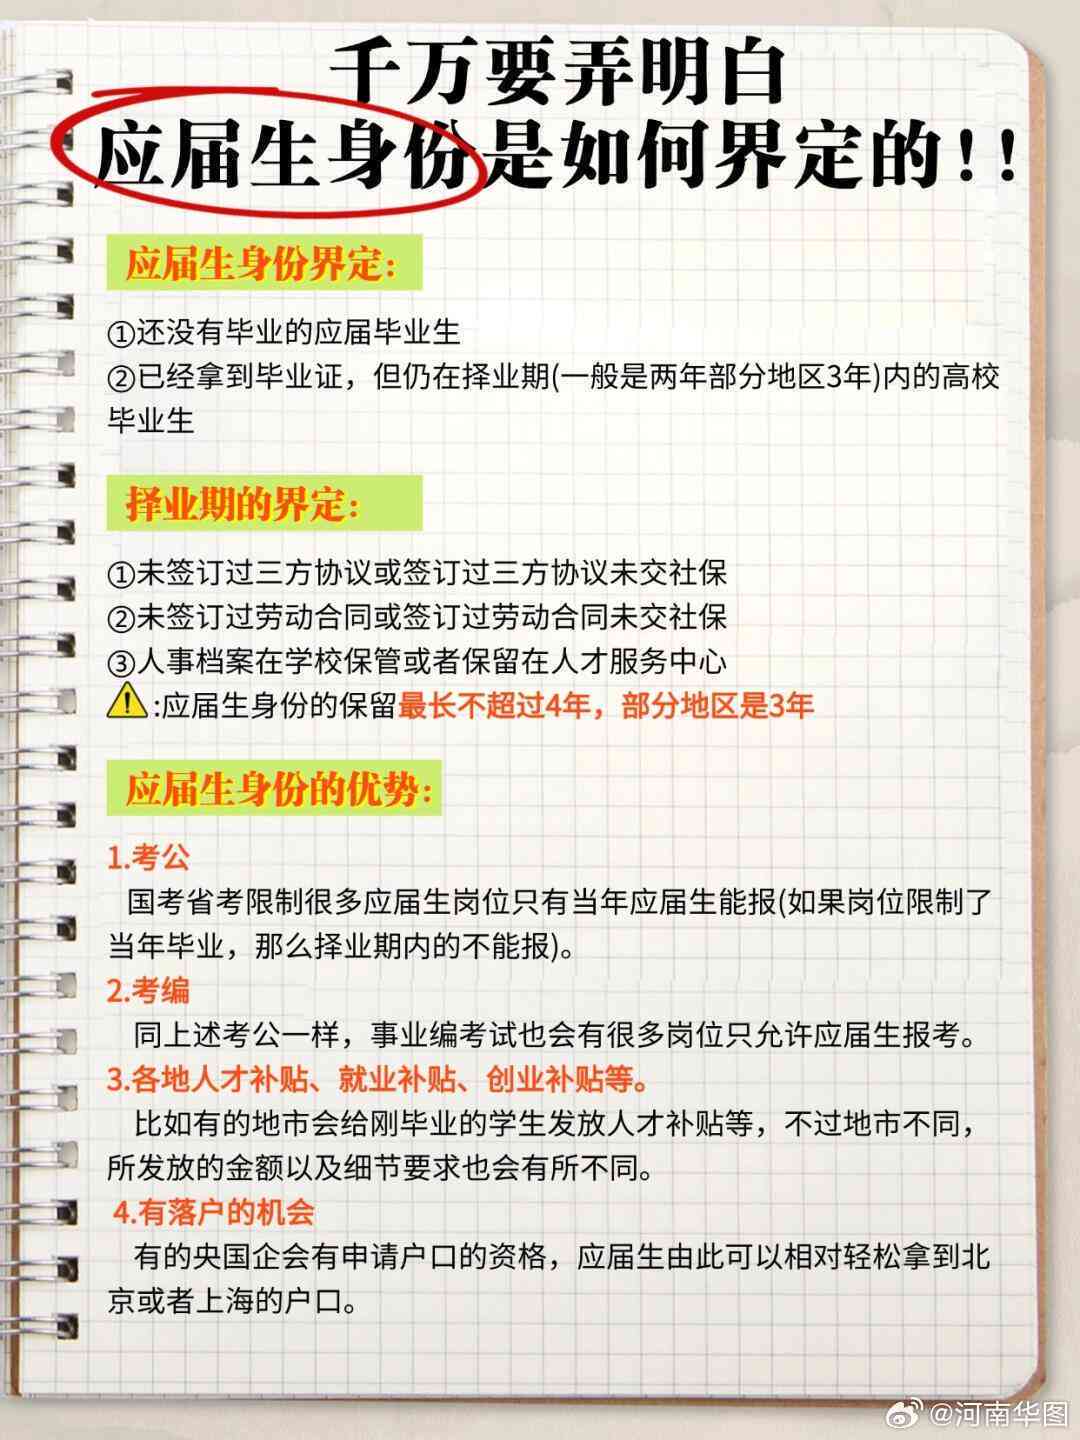 千万要弄明白
应届生身份是如何界定的!!
应届生身份界定:
①还没有毕业的应届毕业生
②已经拿到毕业证，但仍在择业期(一般是两年部分地区3年)内的高校
毕业生
择业期的界定:
①未签订过三方协议或签订过三方协议未交社保
②未签订过劳动合同或签订过劳动合同未交社保
③人事档案在学校保管或者保留在人才服务中心
:应届生身份的保留最长不超过4年，部分地区是3年
应届生身份的优势:
1.考公
国考省考限制很多应届生岗位只有当年应届生能报(如果岗位限制了
当年毕业，那么择业期内的不能报)。
2.考编
同上述考公一样，事业编考试也会有很多岗位只允许应届生报考。
3.各地人才补贴、就业补贴、创业补贴等。
比如有的地市会给刚毕业的学生发放人才补贴等，不过地市不同，
所发放的金额以及细节要求也会有所不同。
4.有落户的机会
有的央国企会有申请户口的资格，应届生由此可以相对轻松拿到北
京或者上海的户口。
@河南华图